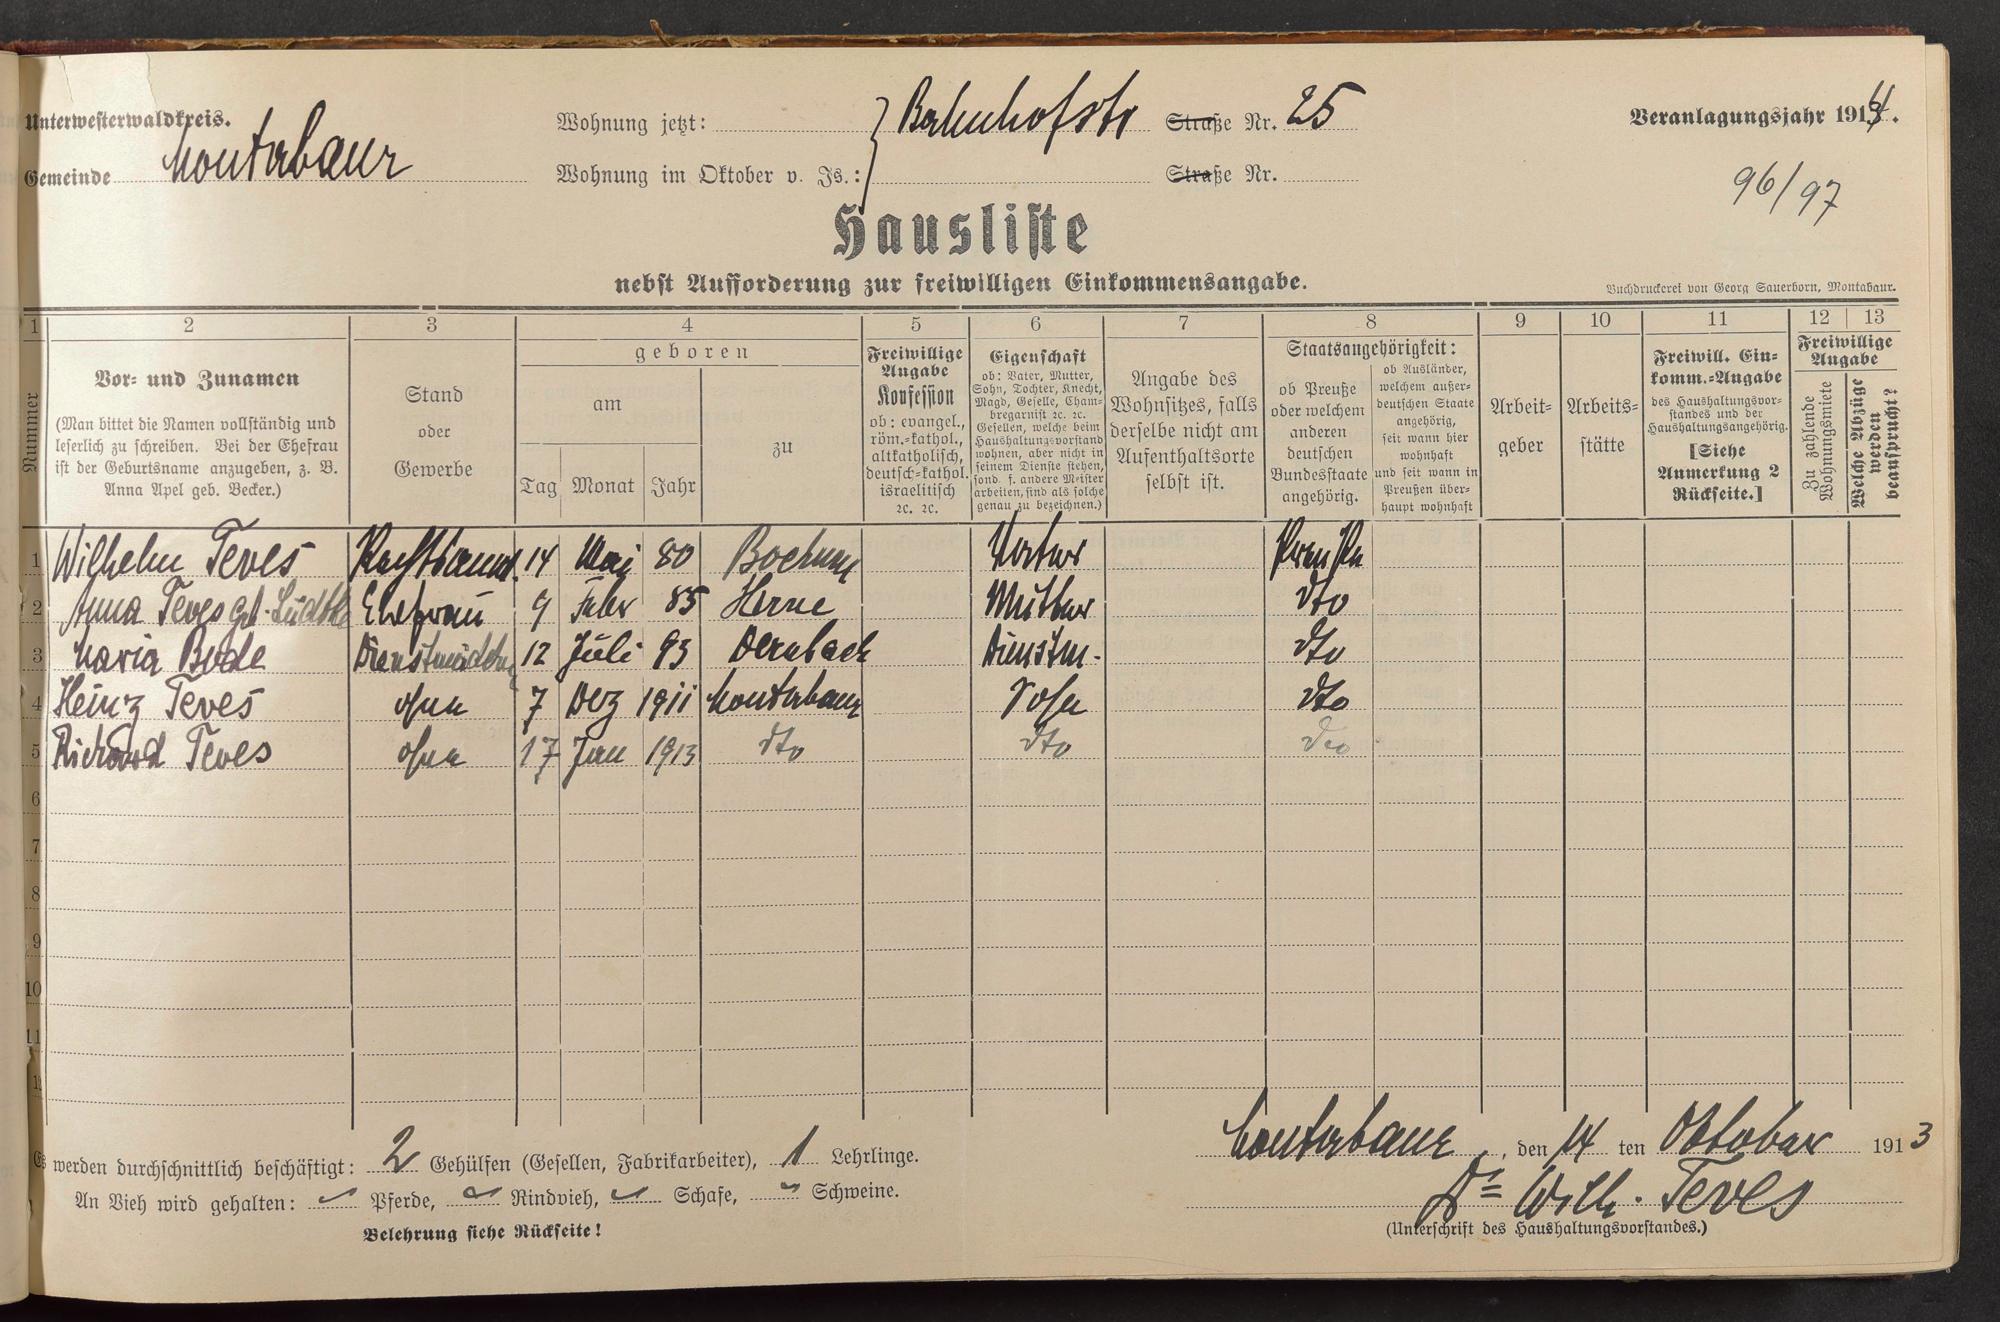 Unterwesterwaldkreis.
Gemeinde Montabaur
Wohnung jetzt: Bahnhofstr Straße Nr. 25
Wohnung im Oktober v. Js.: Straße Nr.
Veranlagungsjahr 1914.
96/97
Hausliste
nebst Aufforderung zur freiwilligen Einkommensangabe.
Buchdruckerei von Georg Sauerborn, Montabaur.
1 2 3 4 5 6 7 8 9 10 11 12 13
Nummer
Vor- und Zunamen
(Man bittet die Namen vollständig und
leserlich zu schreiben. Bei der Ehefrau
ist der Geburtsname anzugeben, z. B.
Anna Apel geb. Becker.)
Stand
oder
Gewerbe
geboren
am
Tag Monat Jahr
zu
Freiwillige
Angabe
Konfession
ob: evangel.,
röm.-kathol.,
altkatholisch,
deutsch-kathol.
israelitisch
2c. 2c.
Eigenschaft
ob: Vater, Mutter,
Sohn, Tochter, Knecht,
Magd, Geselle, Cham-
bregarnist 2c. 2c.
Gesellen, welche beim
Haushaltungsvorstand
wohnen, aber nicht in
seinem Dienste stehen,
sond. f. andere Meister
arbeiten, sind als solche
genau zu bezeichnen.)
Angabe des
Wohnsitzes, falls
derselbe nicht am
Aufenthaltsorte
selbst ist.
Staatsangehörigkeit:
ob Preuße
oder welchem
anderen
deutschen
Bundesstaate
angehörig.
ob Ausländer,
welchem außer-
deutschen Staate
angehörig,
seit wann hier
wohnhaft
und seit wann in
Preußen über-
haupt wohnhaft
Arbeit-
geber
Arbeits-
stätte
Freiwill. Ein-
komm.-Angabe
des Haushaltungsvor-
standes und der
Haushaltungsangehörig.
[Siehe
Anmerkung 2
Rückseite.]
Freiwillige
Angabe
Zu zahlende
Wohnungsmiete
Welche Abzüge
werden
beansprucht?
1 Wilhelm Teves Rechtsanw. 14 Mai 80 Bochum Vater Preuße
2 Anna Teves geb. Lüdtke Ehefrau 9 Febr 85 Herne Mutter dto
3 Maria Bode Dienstmädchen 12 Juli 93 Dernbach Dienstm. dto
4 Heinz Teves ohne 7 Dez 1911 Montabaur Sohn dto
5 Richard Teves ohne 17 Jan 1913 dto dto dto
6
7
8
9
10
11
12
Es werden durchschnittlich beschäftigt: 2 Gehülfen (Gesellen, Fabrikarbeiter), 1 Lehrlinge.
An Vieh wird gehalten: Pferde, Rindvieh, Schafe, Schweine.
Belehrung siehe Rückseite!
Montabaur, den 14 ten Oktober 1913
Dr Wilh. Teves
(Unterschrift des Haushaltungsvorstandes.)